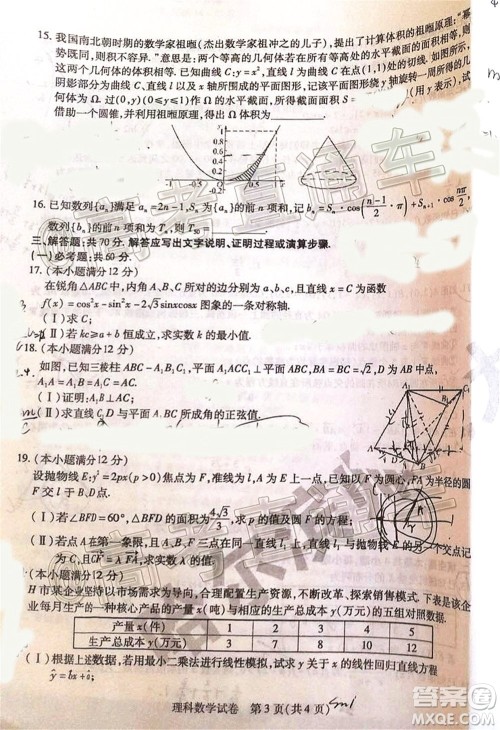 15. 我国南北朝时期的数学家祖暅(杰出数学家祖冲之的儿子),提出了计算体积的祖暅原理:"幂
势既同,则积不容异."意思是:两个等高的几何体若在所有等高处的水平截面的面积相等,则
这两个几何体的体积相等.已知曲线C:y=x²,直线l为曲线C在点(1,1)处的切线.如图所示,
阴影部分为曲线C、直线l以及x轴所围成的平面图形,记该平面图形绕y轴旋转一周所得的几
何体为Ω.过(0,y)(0≤y≤1)作Ω的水平截面,所得截面面积S=
(用y表示),试
借助一个圆锥,并利用祖暅原理,得出Ω体积为
y
1.0
0.8
0.6
0.4
0.2
0.5
1
x
16. 已知数列{aₙ}满足aₙ=2n-1,Sₙ为{aₙ}的前n项和,记bₙ=Sₙ·cos((n-1)/2·π)+Sₙ₋₁·cos(nπ/2),
数列{bₙ}的前n项和为Tₙ,则T₅₀=
三、解答题:共70分.解答应写出文字说明、证明过程或演算步骤.
(一)必考题:共60分.
17. (本小题满分12分)
在锐角△ABC中,内角A,B,C所对的边分别为a,b,c,且直线x=C为函数
f(x)=cos²x-sin²x-2√3sinxcosx图象的一条对称轴.
(Ⅰ)求C;
(Ⅱ)若kc≥a+b恒成立,求实数k的最小值.
18. (本小题满分12分)
如图,已知三棱柱ABC-A₁B₁C₁,平面A₁ACC₁⊥平面ABC,AA₁=AC=BC=√2,D为AB的中点,
A₁A=A₁C=AB=2.
(Ⅰ)证明:
(Ⅱ)求直线C₁D与平面A₁BC所成角的正弦值.
19. (本小题满分12分)
设抛物线E:y²=2px(p>0)焦点为F,准线为l,A为E上一点,已知以F为圆心,FA为半径的圆
F交l于B,D点.
(Ⅰ)若∠BFD=60°,△BFD的面积为4√3/3,求p的值及圆F的方程;
(Ⅱ)若点A在第一象限,且A、B、F三点在同一直线l₁上,直线l₁与抛物线E的另一个交点记
为C,且CF=λFA,求实数λ的值.
(本小题满分12分)
H市某企业坚持以市场需求为导向,合理配置生产资源,不断改革、探索销售模式.下表是该企
业每月生产的一种核心产品的产量x(件)与相应的生产总成本y(万元)的五组对照数据.
产量x(件) 1 2 3 4 5
生产总成本y(万元) 3 7 8 10 12
(Ⅰ)根据上述数据,若用最小二乘法进行线性模拟,试求y关于x的线性回归直线方程
ŷ=b̂x+â;
理科数学试卷 第3页(共4页)
答案圈